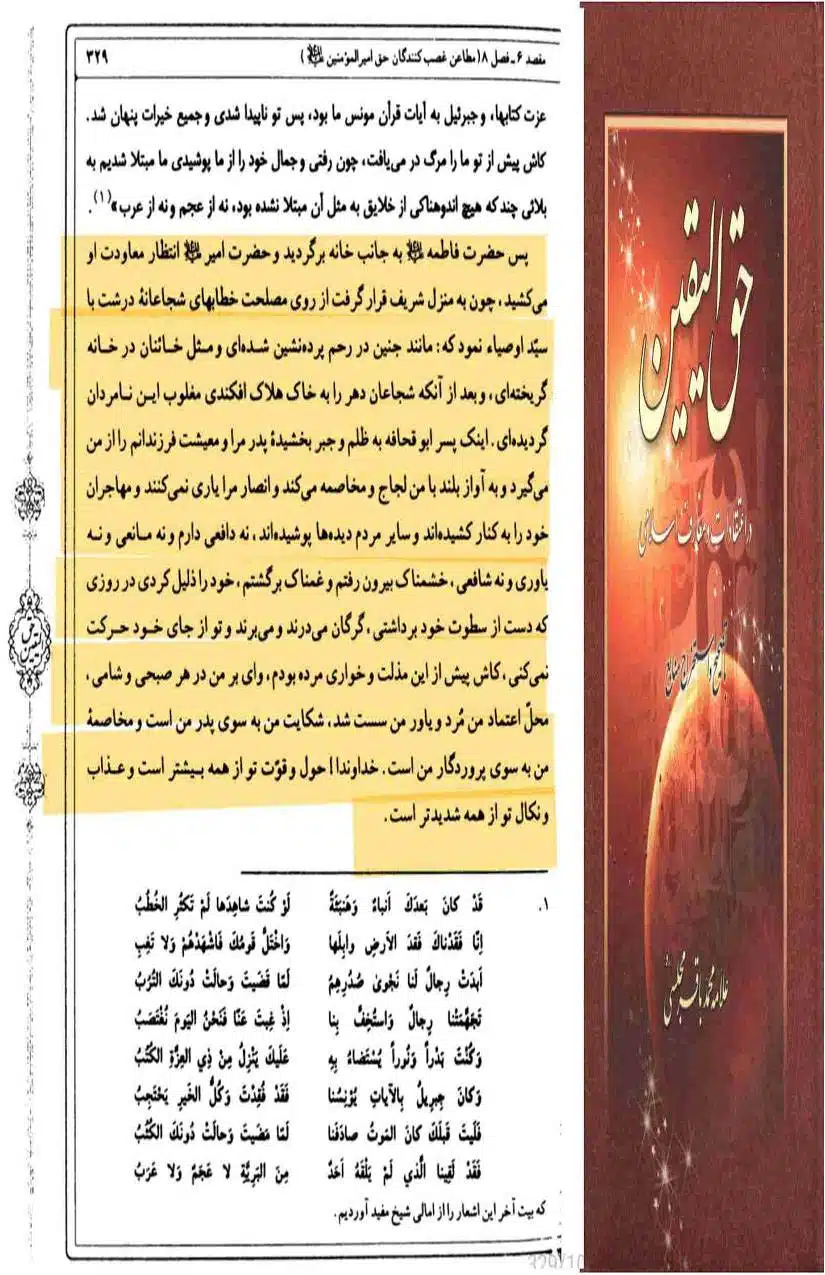 مقصد ۶ ـ فصل ۸ (مطاعن غصب کنندگان حق امیرالمؤمنین ﷷ) ۳۲۹
عزت کتابها، و جبرئیل به آیات قرآن مونس ما بود، پس تو ناپیدا شدی و جمیع خیرات پنهان شد.
کاش پیش از تو ما را مرگ در می‌یافت، چون رفتی و جمال خود را از ما پوشیدی ما مبتلا شدیم به
بلائی چند که هیچ اندوهناکی از خلایق به مثل آن مبتلا نشده بود، نه از عجم و نه از عرب» (۱).
پس حضرت فاطمه به جانب خانه برگردید و حضرت امیر انتظار معاودت او
می‌کشید، چون به منزل شریف قرار گرفت از روی مصلحت خطابهای شجاعانهٔ درشت با
سیّد اوصیاء نمود که: مانند جنین در رحم پرده‌نشین شده‌ای و مثل خائنان در خانه
گریخته‌ای، و بعد از آنکه شجاعان دهر را به خاک هلاک افکندی مغلوب این نامردان
گردیده‌ای. اینک پسر ابو قحافه به ظلم و جبر بخشیدهٔ پدر مرا و معیشت فرزندانم را از من
می‌گیرد و به آواز بلند با من لجاج و مخاصمه می‌کند و انصار مرا یاری نمی‌کنند و مهاجران
خود را به کنار کشیده‌اند و سایر مردم دیده‌ها پوشیده‌اند، نه دافعی دارم و نه مانعی و نه
یاوری و نه شافعی، خشمناک بیرون رفتم و غمناک برگشتم، خود را ذلیل کردی در روزی
که دست از سطوت خود برداشتی، گرگان می‌درند و می‌برند و تو از جای خود حرکت
نمی‌کنی، کاش پیش از این مذلت و خواری مرده بودم، وای بر من در هر صبحی و شامی،
محلّ اعتماد من مُرد و یاور من سست شد، شکایت من به سوی پدر من است و مخاصمهٔ
من به سوی پروردگار من است. خداوندا! حول و قوّت تو از همه بیشتر است و عذاب
و نکال تو از همه شدیدتر است.
۱. قَدْ کانَ بَعدَكَ أنباءٌ وَهَنبَثَةٌ لَوْ کُنتَ شاهِدَها لَمْ تَکثُرِ الخُطَبُ
إنّا فَقَدْناكَ فَقدَ الأرضِ وابِلَها وَاخْتَلَّ قَومُكَ فَاشْهَدْهُمْ وَلا تَغِبِ
أبدَتْ رِجالٌ لَنا نَجْوی صُدُرِهِمُ لَمّا قَضَیتَ وَحالَتْ دُونَكَ التُرَبُ
تَجَهَّمَتْنا رِجالٌ وَاستُخِفَّ بِنا إذْ غِبتَ عَنّا فَنَحْنُ الیَومَ نُغْتَصَبُ
وَکُنْتَ بَدْراً وَنُوراً یُسْتَضاءُ بِهِ عَلَیكَ یَنْزِلُ مِنْ ذِي العِزَّةِ الکُتُبُ
وَکانَ جِبرِیلُ بِالآیاتِ یُؤنِسُنا فَقَدْ فُقِدْتَ وَکُلُّ الخَیرِ یَحْتَجِبُ
فَلَیتَ قَبلَكَ کانَ المَوتُ صادَفَنا لَمّا مَضَیتَ وَحالَتْ دُونَكَ الکُتُبُ
فَقَدْ لَقِینا الَّذي لَمْ یَلْقَهُ أحَدٌ مِنَ البَرِیَّةِ لا عَجَمٌ وَلا عَرَبُ
که بیت آخر این اشعار را از امالی شیخ مفید آوردیم.
حق الیقین
حق الیقین
در اعتقادات و معارف اسلامی
تصحیح و استخراج منابع
علامه محمد باقر مجلسی